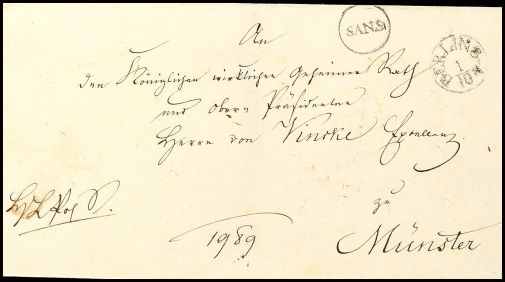 SAN.S
BERLIN
1
An
den Königlichen wirklichen Geheimen Rath
und Ober Präsidenten
Herrn von Vincke Excellenz
zu
Münster
1989